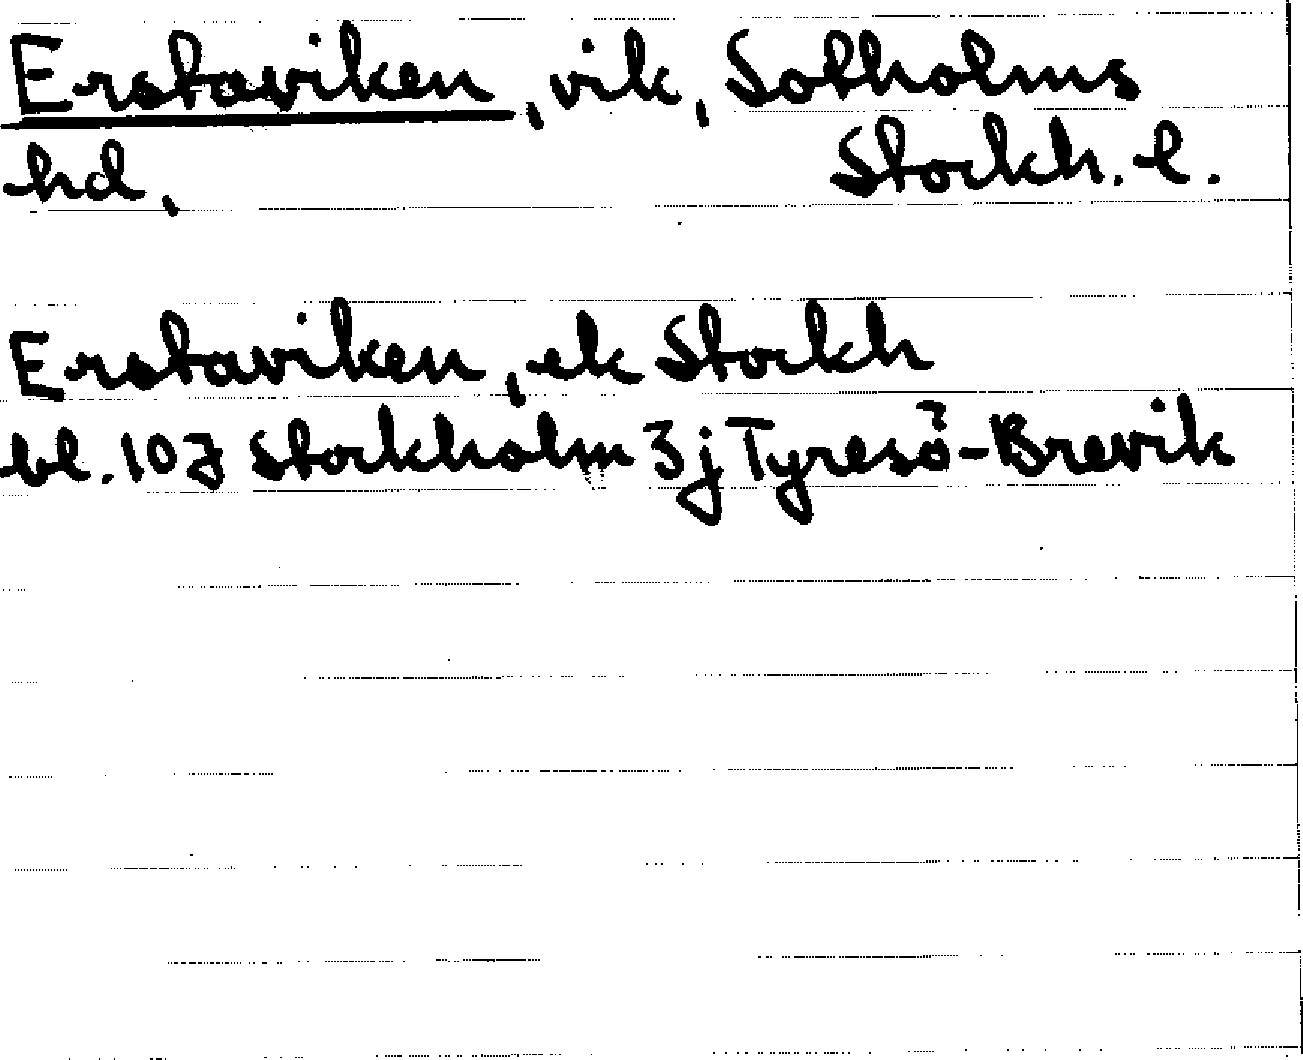 Erstaviken, vik, Sotholms
hd, Stockh. l.
Erstaviken, ek Stockh
bl. 10J Stockholm 3j Tyresö-Brevik